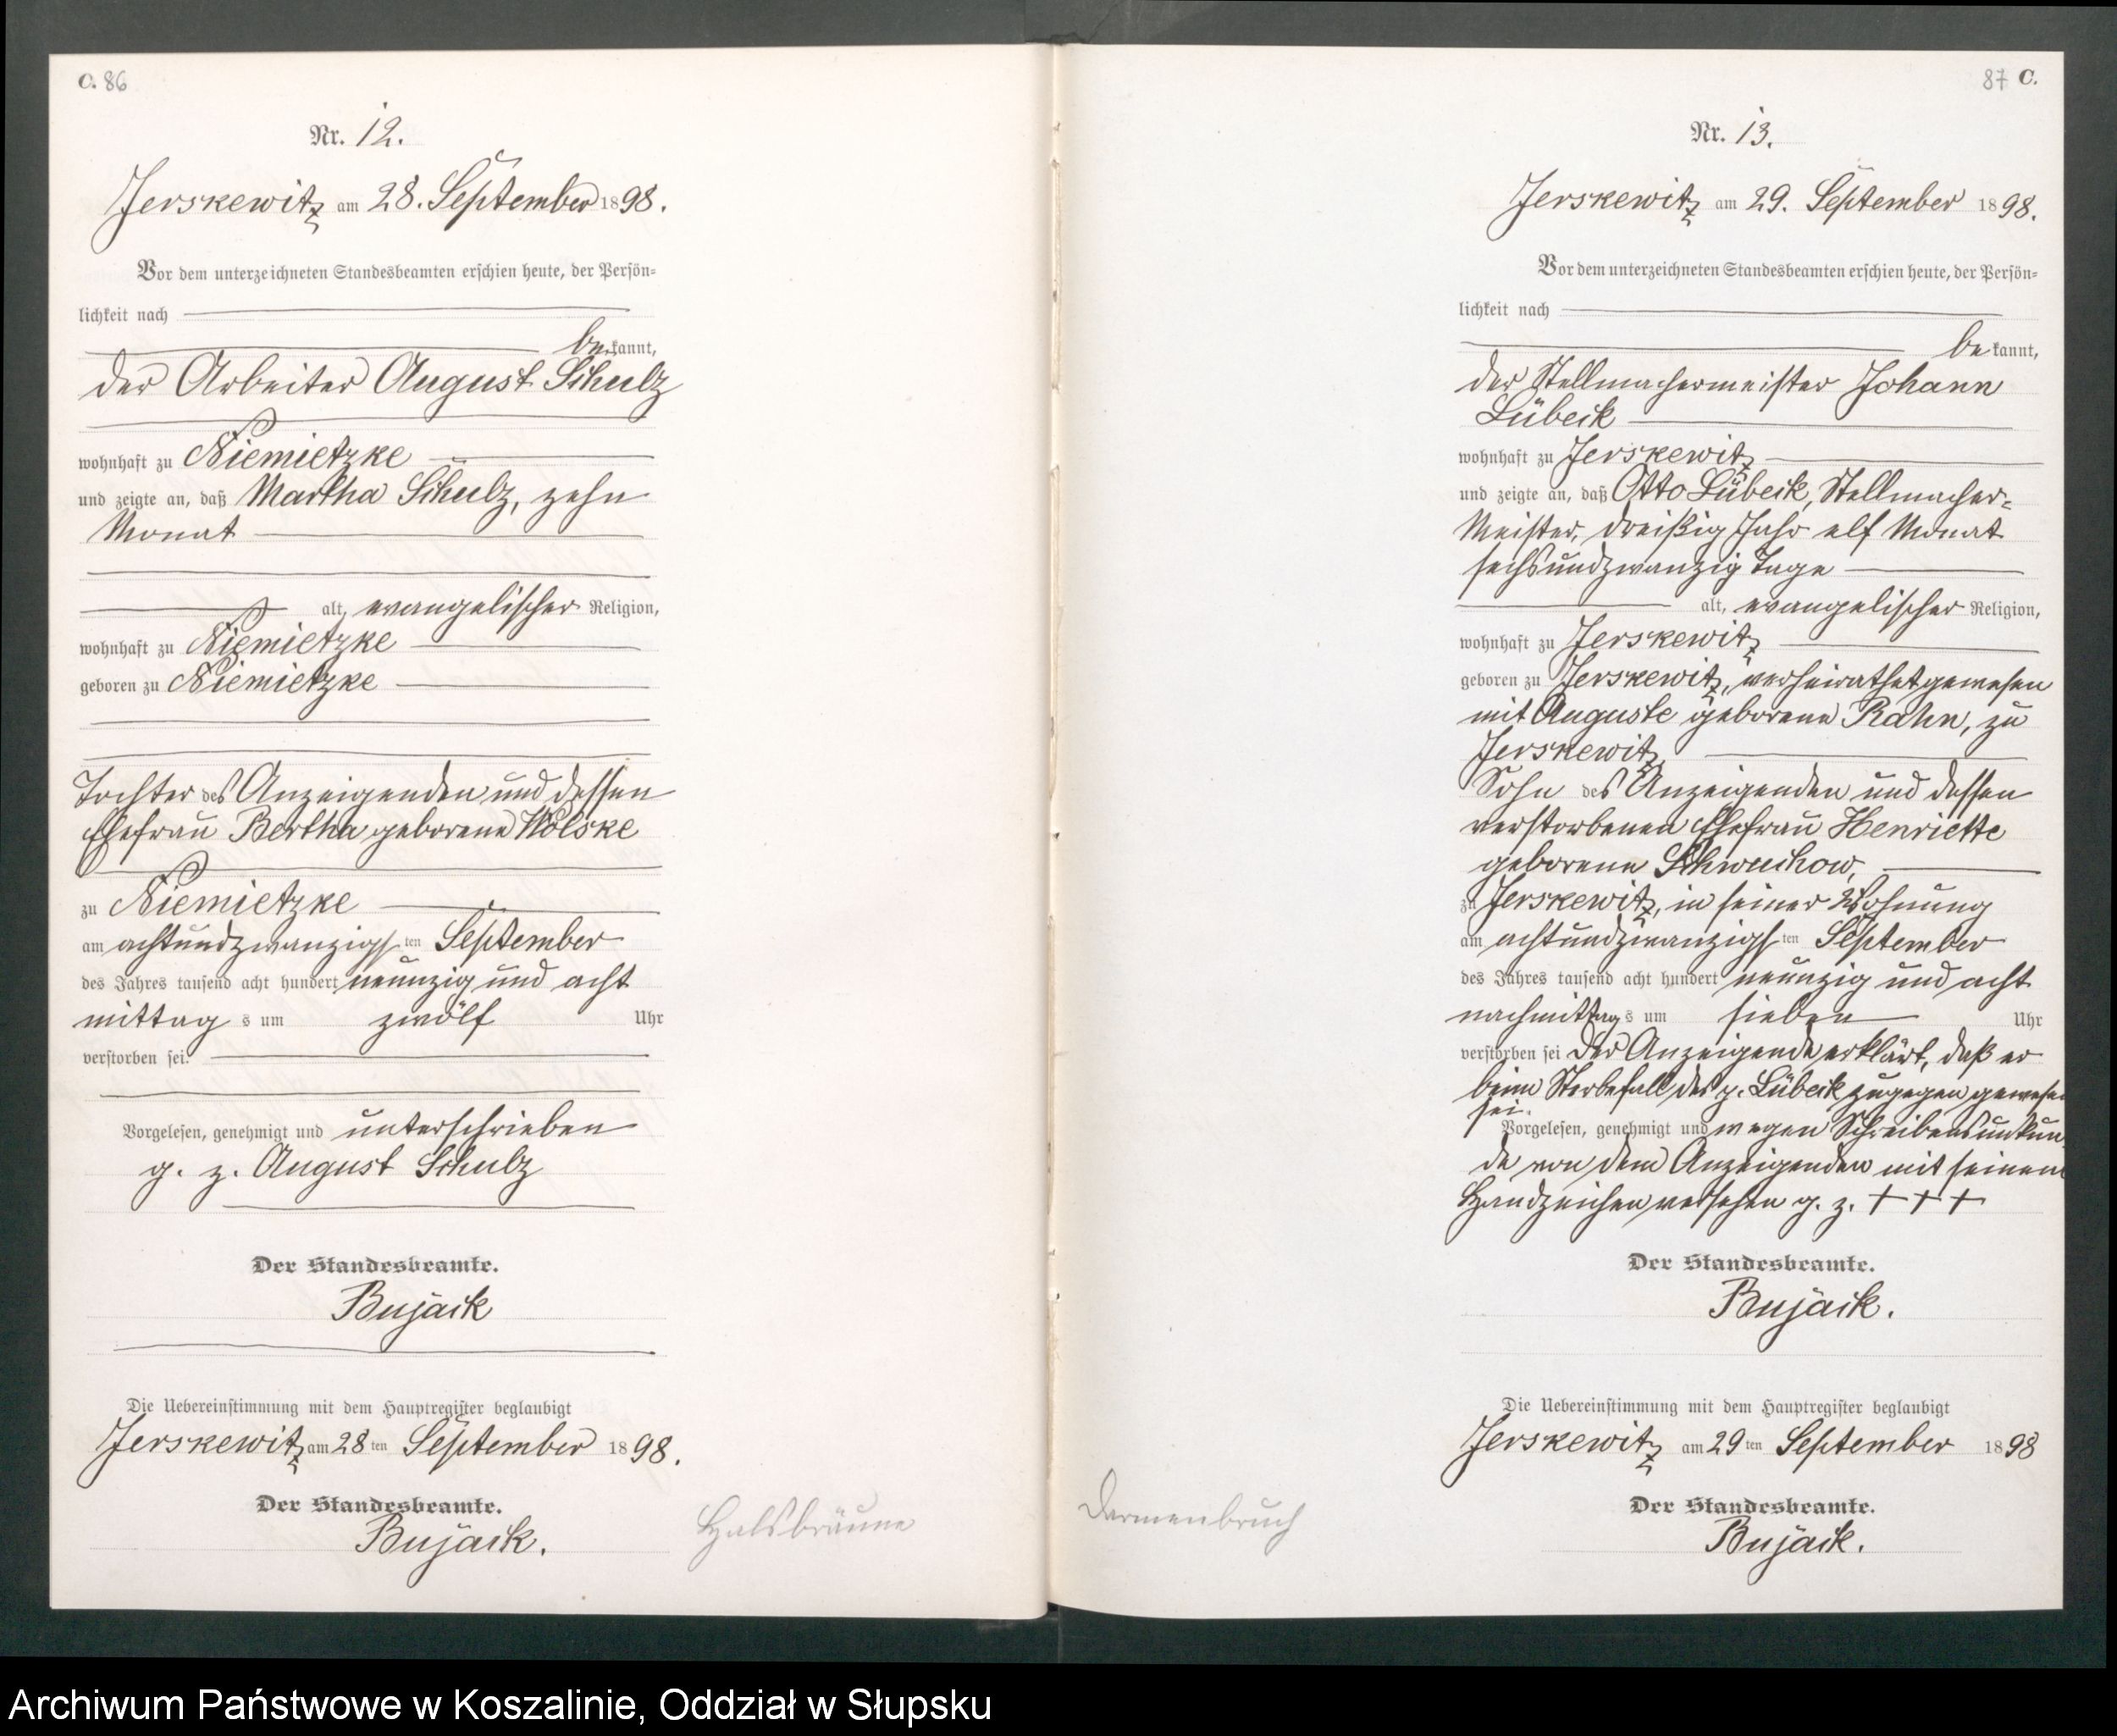 C. 86
Nr. 12.
Jerskewitz am 28. September 1898.
Vor dem unterzeichneten Standesbeamten erschien heute, der Persön-
lichkeit nach
bekannt,
der Arbeiter August Schulz
wohnhaft zu Niemietzke
und zeigte an, daß Martha Schulz, zehn
Monat
alt, evangelischer Religion,
wohnhaft zu Niemietzke
geboren zu Niemietzke
Tochter des Anzeigenden und dessen
Ehefrau Bertha geborene Wolske
zu Niemietzke
am achtundzwanzigsten September
des Jahres tausend acht hundert neunzig und acht
mittags um zwölf Uhr
verstorben sei.
Vorgelesen, genehmigt und unterschrieben
g. z. August Schulz
Der Standesbeamte.
Bujack
Die Uebereinstimmung mit dem Hauptregister beglaubigt
Jerskewitz am 28ten September 1898.
Der Standesbeamte.
Bujack.
Halsbräune
87 C.
Nr. 13.
Jerskewitz am 29. September 1898.
Vor dem unterzeichneten Standesbeamten erschien heute, der Persön-
lichkeit nach
bekannt,
der Stellmachermeister Johann
Lübeck
wohnhaft zu Jerskewitz
und zeigte an, daß Otto Lübeck, Stellmacher-
Meister, dreißig Jahr elf Monat
sechsundzwanzig Tage
alt, evangelischer Religion,
wohnhaft zu Jerskewitz
geboren zu Jerskewitz, verheirathet gewesen
mit Auguste geborene Rahn, zu
Jerskewitz,
Sohn des Anzeigenden und dessen
verstorbenen Ehefrau Henriette
geborene Schwuchow,
zu Jerskewitz, in seiner Wohnung
am achtundzwanzigsten September
des Jahres tausend acht hundert neunzig und acht
nachmittags um sieben Uhr
verstorben sei der Anzeigende erklärt, daß er
beim Sterbefall des p. Lübeck zugegen gewesen
sei.
Vorgelesen, genehmigt und wegen Schreibensunkun
de von dem Anzeigenden mit seinem
Handzeichen versehen g. z. + + +
Der Standesbeamte.
Bujack.
Die Uebereinstimmung mit dem Hauptregister beglaubigt
Jerskewitz am 29ten September 1898
Der Standesbeamte.
Bujack.
Darmenbruch
Archiwum Państwowe w Koszalinie, Oddział w Słupsku